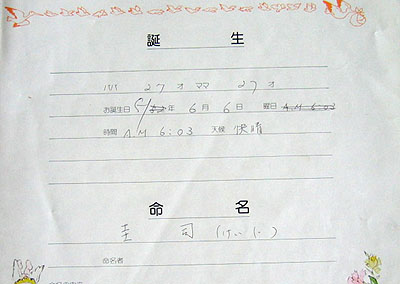 誕生
パパ 27才 ママ 27才
お誕生日 年 6月 6日 曜日 A.M 6:03
時間 A.M 6:03 天候 快晴
命名
圭司 (けいじ)
命名者